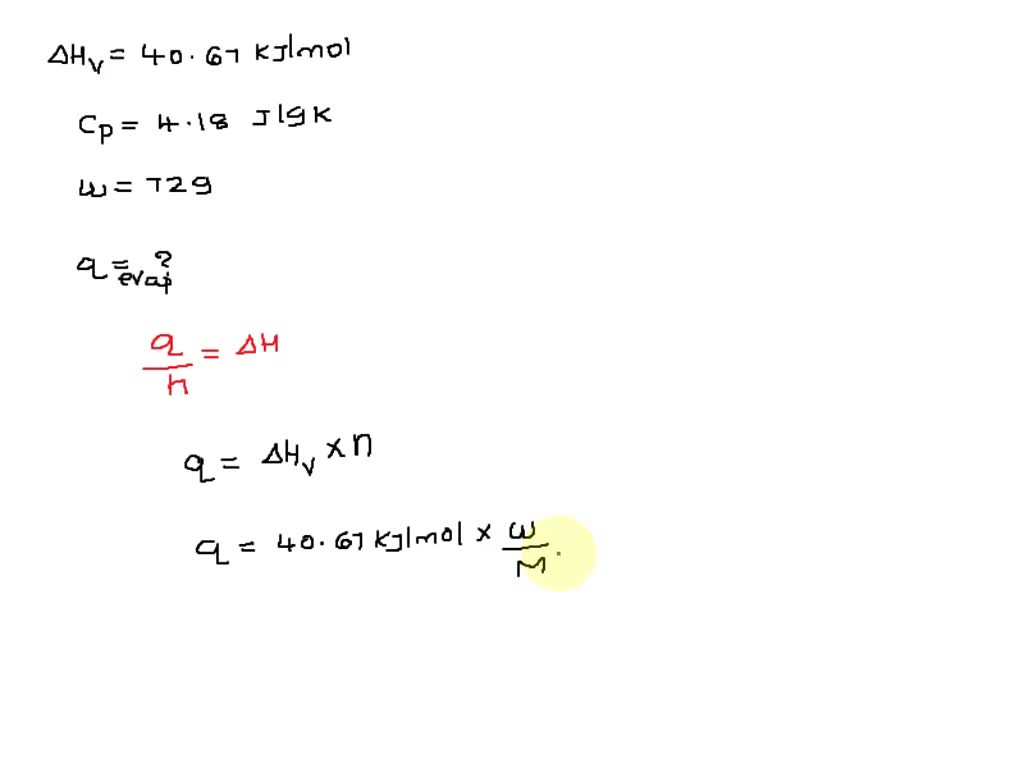 ΔHv = 40.67 KJ/mol
Cp = 4.18 J/gK
w = 72g
q evap = ?
q/n = ΔH
q = ΔHv × n
q = 40.67 KJ/mol × w/M